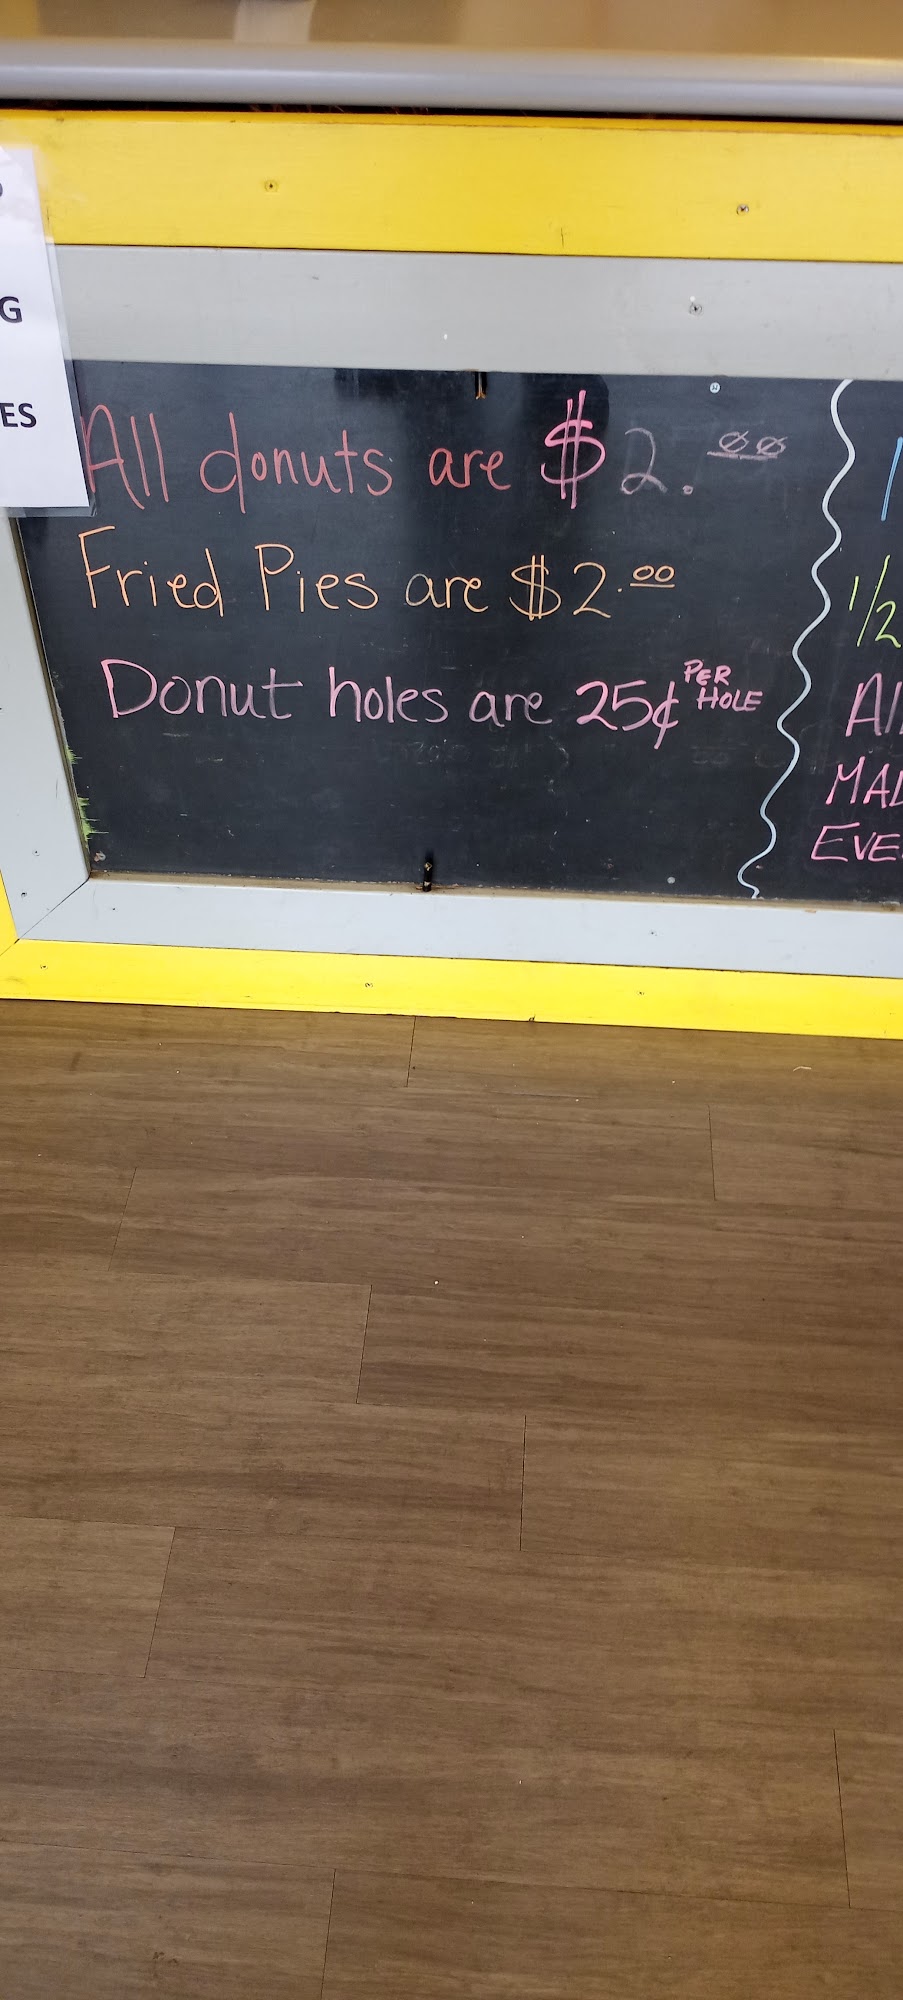 G
ES
All donuts are $2.00
Fried Pies are $2.00
Donut holes are 25¢ PER HOLE
1/2